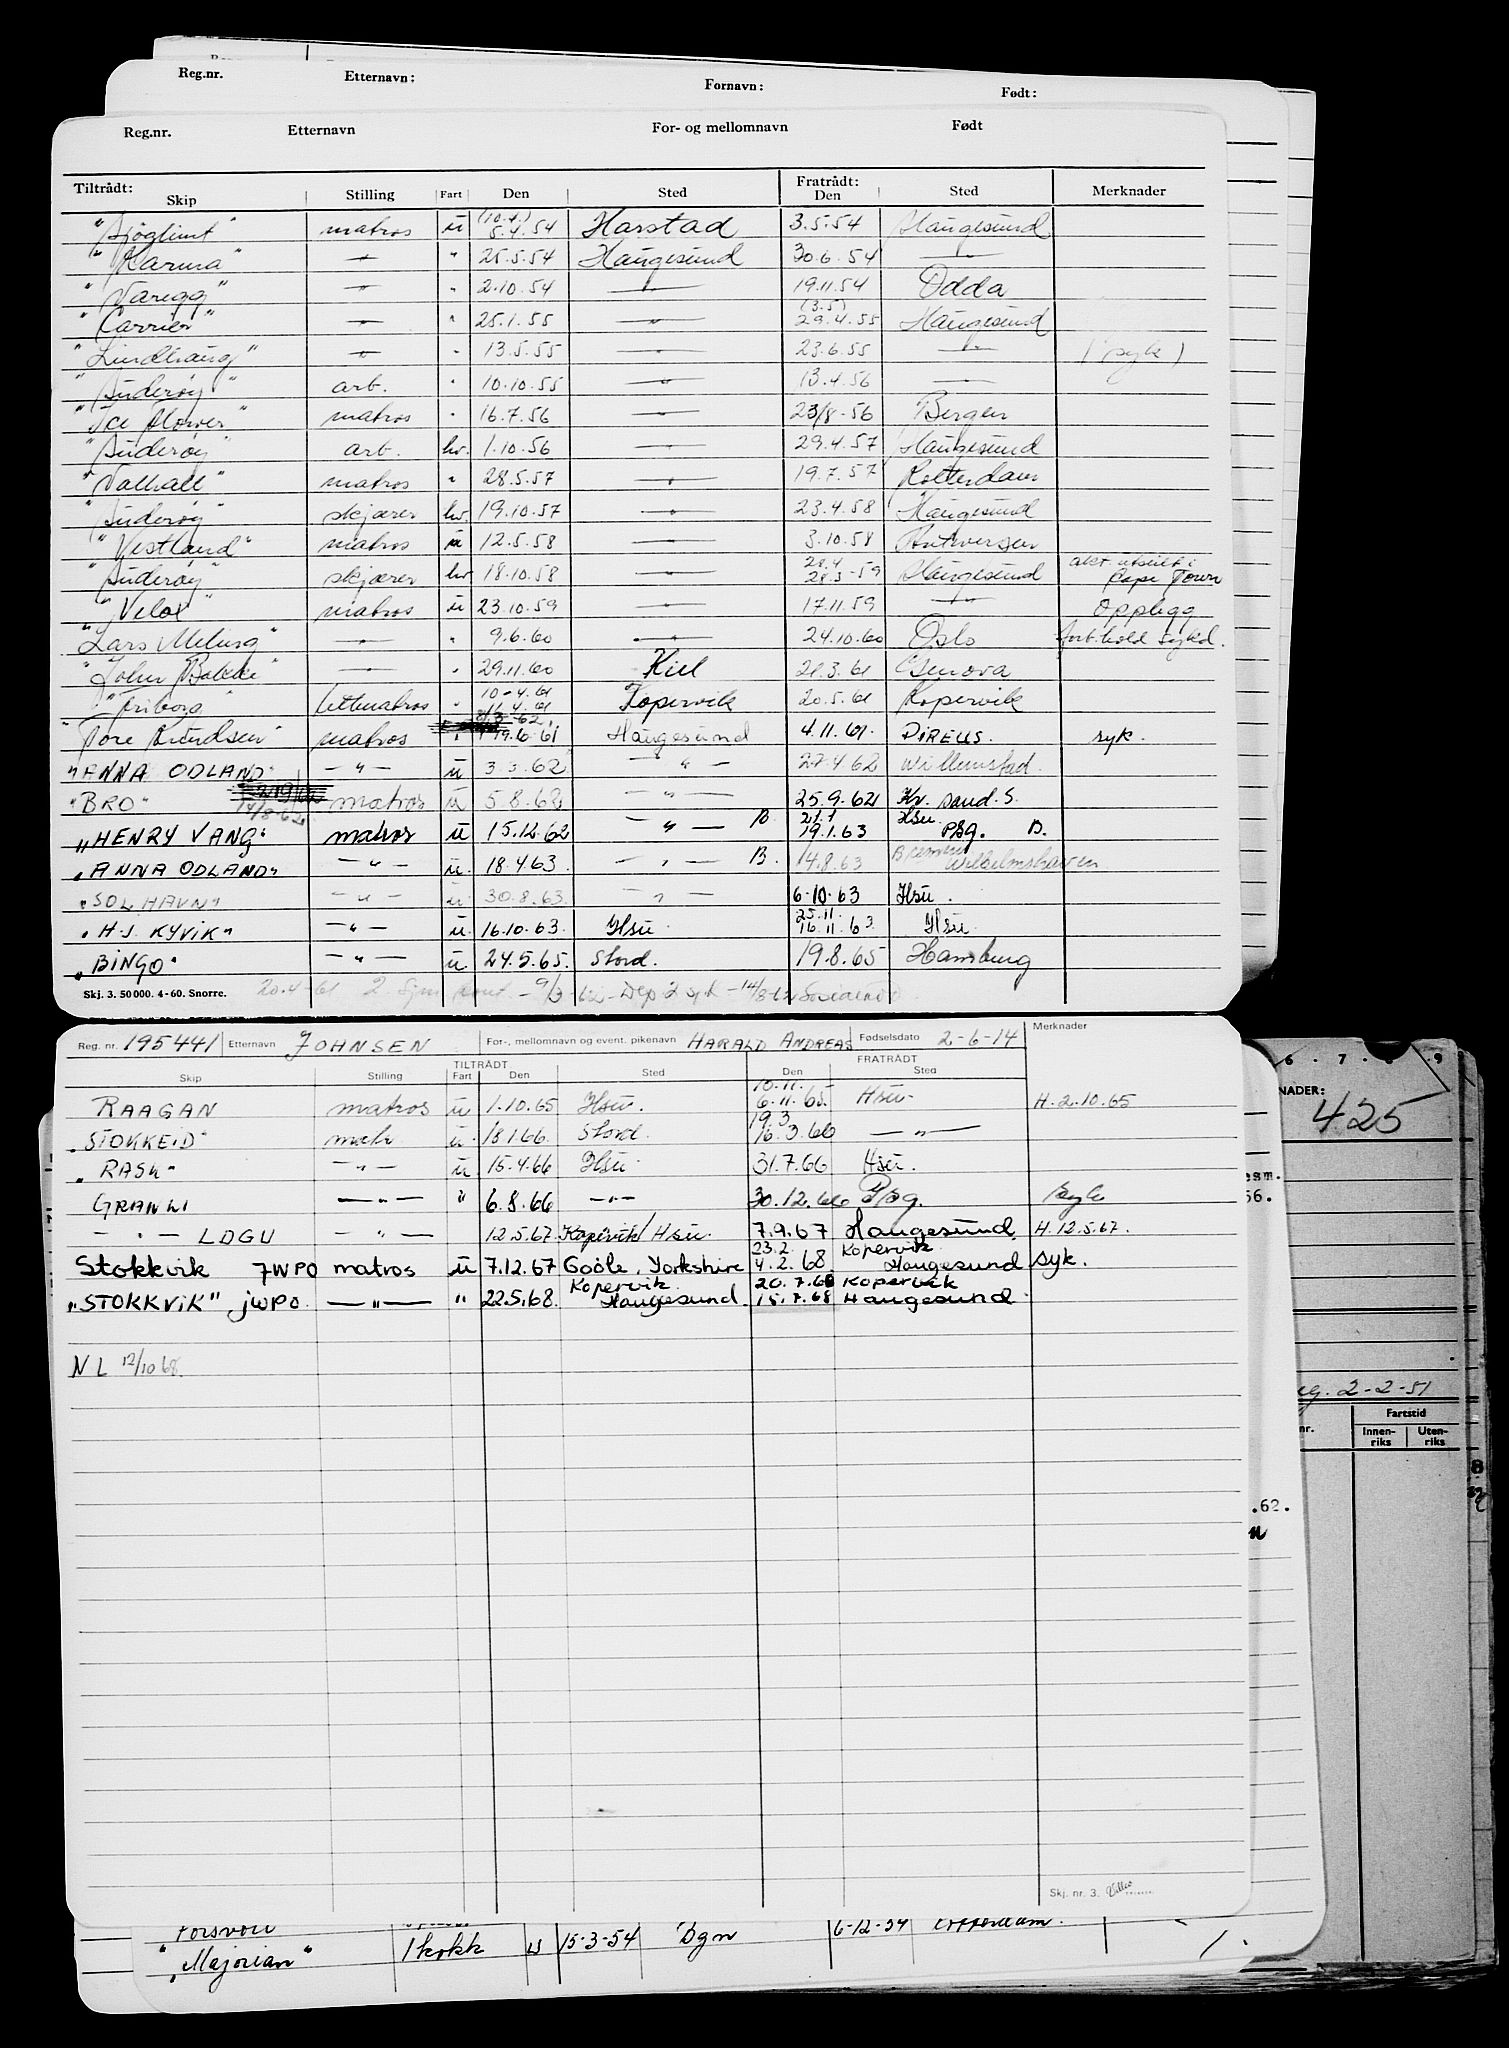 Reg.nr. Etternavn: Fornavn: Født:
Reg.nr. Etternavn For- og mellomnavn Født
Tiltrådt: Fratrådt:
Skip Stilling Fart Den Sted Den Sted Merknader
"Sjøglimt" matros u (10.4.) 5.4.54 Harstad 3.5.54 Haugesund
"Karma" —"— " 25.5.54 Haugesund 30.6.54 —"—
"Varegg" —"— " 2.10.54 —"— 19.11.54 Odda
"Carrier" —"— " 25.1.55 —"— (3.5) 29.4.55 Haugesund
"Lindhaug" —"— " 13.5.55 —"— 23.6.55 —"— (syk)
"Suderøy" arb. " 10.10.55 —"— 13.4.56 —"—
"Ice Flower" matros " 16.7.56 —"— 23/8-56 Bergen
"Suderøy" arb. hv. 1.10.56 —"— 29.4.57 Haugesund
"Valhall" matros " 28.5.57 —"— 19.7.57 Rotterdam
"Suderøy" skjærer hv. 19.10.57 —"— 23.4.58 Haugesund
"Vestland" matros u 12.5.58 —"— 3.10.58 Antwerpen
"Suderøy" skjærer hv 18.10.58 —"— 28.4 28.3-59 Haugesund akt. utstilt i Cape Town
"Velox" matros u 23.10.59 —"— 17.11.59 —"— Opplegg
"Lars Meling" —"— " 9.6.60 —"— 24.10.60 Oslo forhold sykd.
"John Bakke" —"— " 29.11.60 Kiel 21.3.61 Genova
"Friborg" lettmatros " 10-4.61 11.4.61 Kopervik 20.5.61 Kopervik
"Tore Knudsen" matros " 19.6.61 Haugesund 4.11.61. PIREUS. syk.
"ANNA ODLAND" —"— u 3.3.62 —"— 27.4.62 Willemstad.
"BRO" 14/8-62 matros u 5.8.62 —"— 25.9.62 Kr. sand. S.
"HENRY VANG" matros u 15.12.62 —"— B 21.1 19.1.63 Hsu. Psg. B.
"ANNA ODLAND" —"— u. 18.4.63 —"— B. 14.8.63 Bremen Wilhelmshaven
"SOLHAVN" —"— u. 30.8.63. —"— 6.10.63 Hsu.
"H.J. KYVIK" —"— u. 16.10.63. Hsu. 25.11. 16.11.63. Hsu.
"BINGO" —"— u. 24.5.65. Stord. 19.8.65 Hamburg
Skj. 3. 50 000. 4-60. Snorre. 20.4-61 2. Sjm. - 9/3-62 - Dep 2 syk - 14/8-62
Reg. nr. 195441 Etternavn JOHNSEN For-, mellomnavn og event. pikenavn HARALD ANDREAS Fødselsdato 2-6-14 Merknader
TILTRÅDT FRATRÅDT
Skip Stilling Fart Den Sted Den Sted
RAAGAN matros u 1.10.65 Hsu. 10.11. 6.11.65. Hsu. H.2.10.65
"STOKKEID" matr u. 18.1.66. Stord. 19.3 16.3.66 —"—
"RASK" —"— u. 15.4.66 Hsu. 31.7.66 Hsu.
GRANLI —"— " 6.8.66 —"— 30.12.66 P/sg. syk
—"— LDGU —"— 12.5.67. Kopervik/Hsu. 7.9.67 Haugesund. H.12.5.67.
Stokkvik JWPO matros u 7.12.67 Goole, Yorkshire 23.2. 4.2.68. Kopervik Haugesund syk.
"STOKKVIK", JWPO. —"— " 22.5.68. Kopervik Haugesund. 20.7.68 15.7.68 Kopervik Haugesund.
NL 12/10 68.
Skj. nr. 3.
"Majorian" 1 kokk u 15-3-54 Bgn 6-12-54
6 . 7 . 8 . 9
NADER:
425
esm.
2-2-51
Fartstid
nr. Innen-riks Uten-riks
.62.